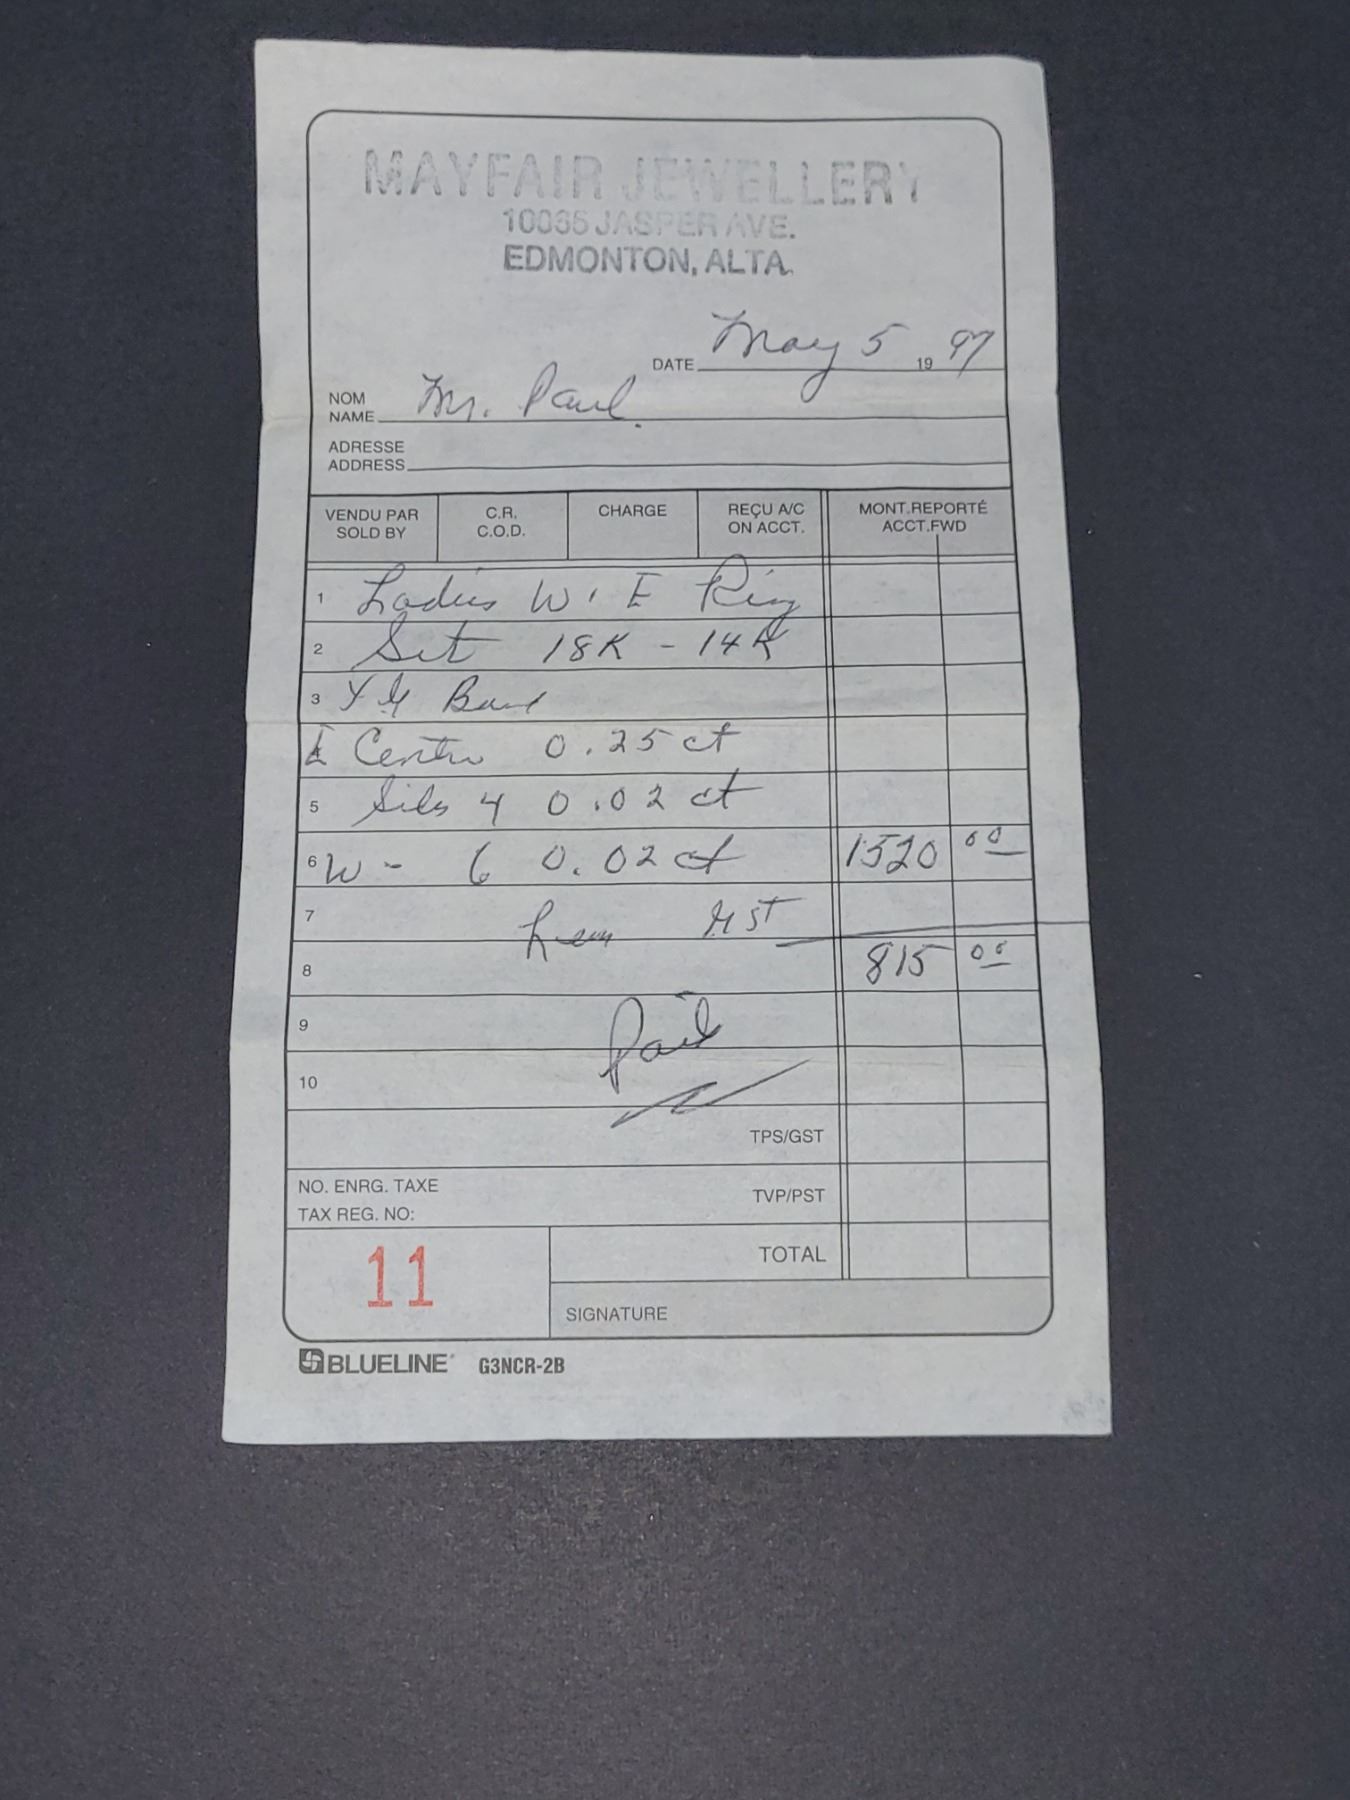 MAYFAIR JEWELLERY
10065 JASPER AVE.
EDMONTON, ALTA.
DATE May 5 19 97
NOM
NAME Mr. Paul.
ADRESSE
ADDRESS
VENDU PAR
SOLD BY
C.R.
C.O.D.
CHARGE
REÇU A/C
ON ACCT.
MONT.REPORTÉ
ACCT.FWD
1 Ladies W. E Ring
2 Set 18K - 14K
3 Y G Band
E Centre 0.25 ct
5 Sides 4 0.02 ct
6 W - 6 0.02 ct 1520 00
7 Less GST
8 815 00
9 Paid
10
TPS/GST
NO. ENRG. TAXE
TAX REG. NO:
TVP/PST
11
TOTAL
SIGNATURE
BLUELINE G3NCR-2B